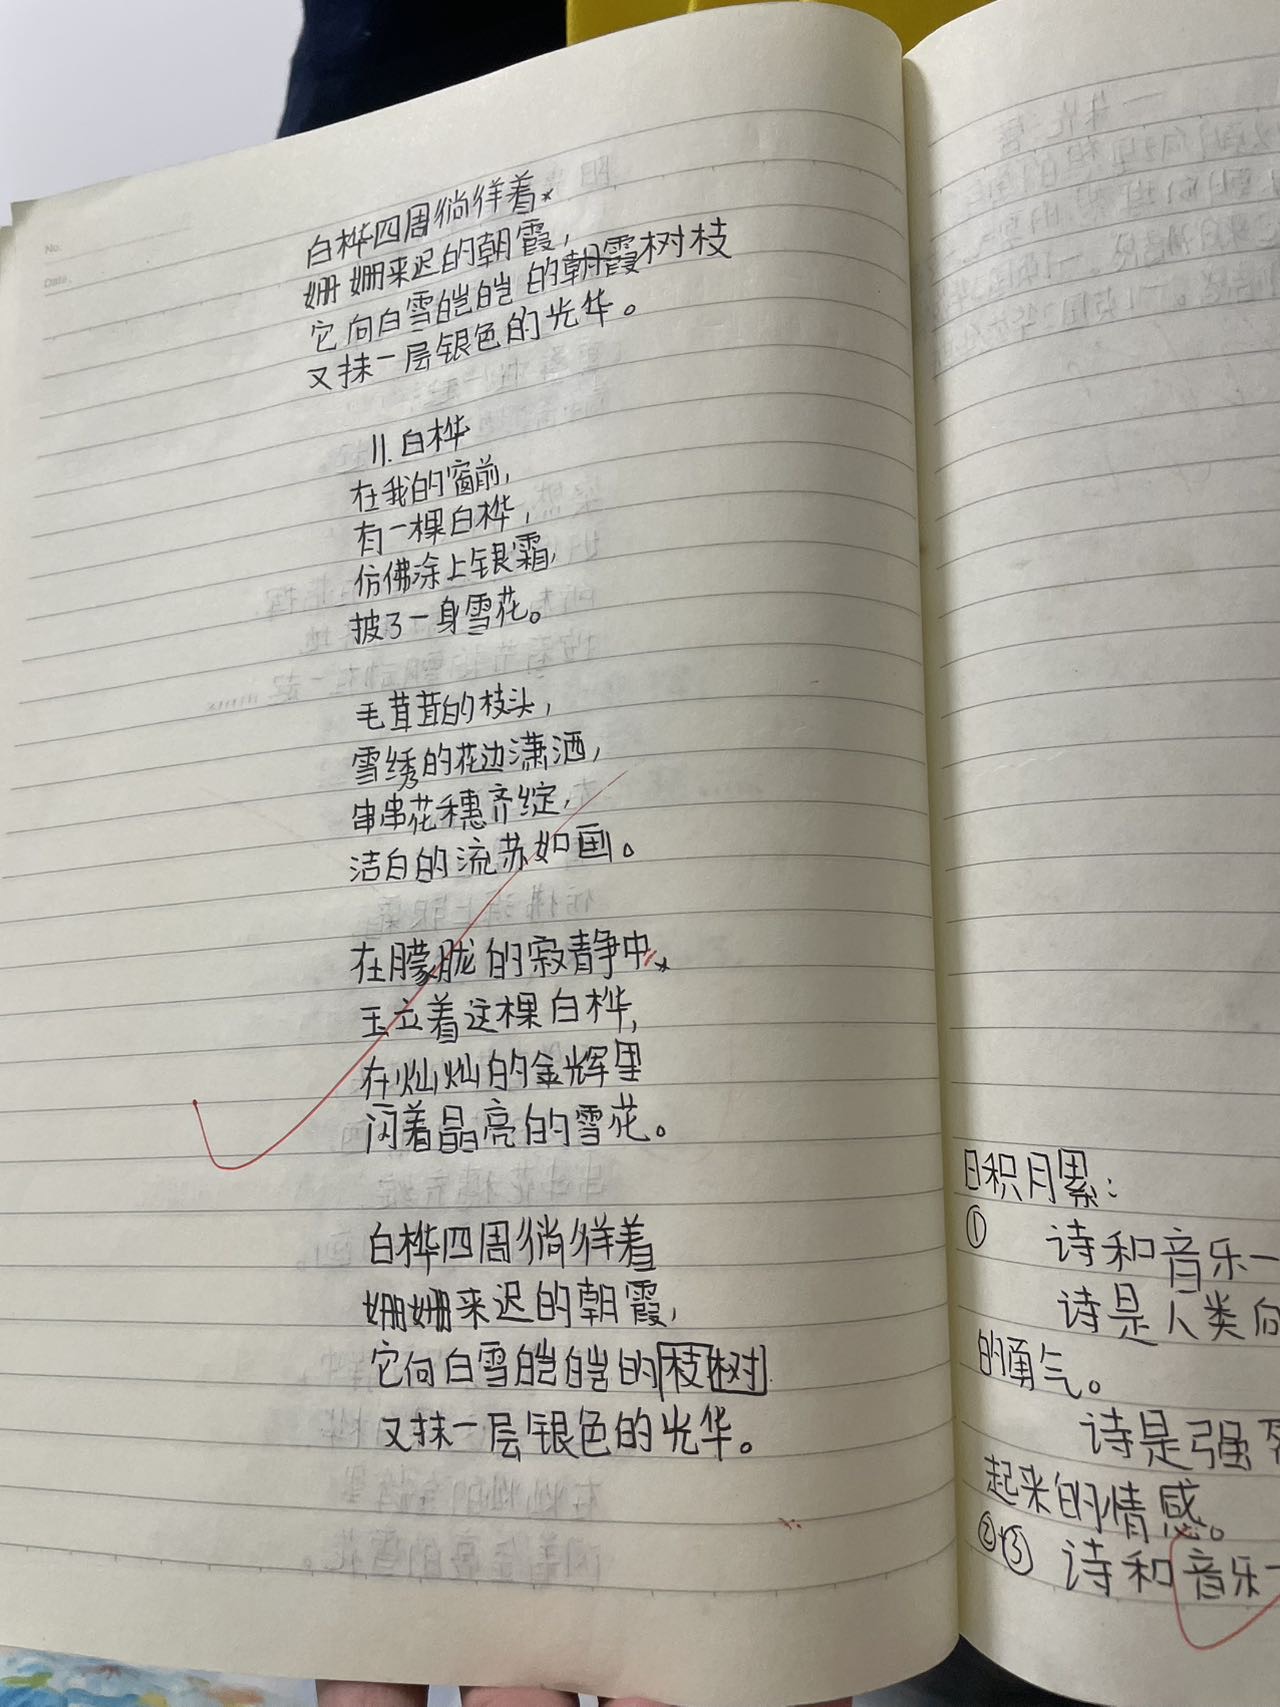 No:
Date:
白桦四周徜徉着
姗姗来迟的朝霞，
它向白雪皑皑的朝霞树枝
又抹一层银色的光华。
11.白桦
在我的窗前，
有一棵白桦，
仿佛涂上银霜，
披了一身雪花。
毛茸茸的枝头，
雪绣的花边潇洒，
串串花穗齐绽，
洁白的流苏如画。
在朦胧的寂静中
玉立着这棵白桦，
在灿灿的金辉里
闪着晶亮的雪花。
白桦四周徜徉着
姗姗来迟的朝霞，
它向白雪皑皑的枝树
又抹一层银色的光华。
日积月累：
① 诗和音乐一
诗是人类向
的勇气。
诗是强
起来的情感。
②③ 诗和音乐一